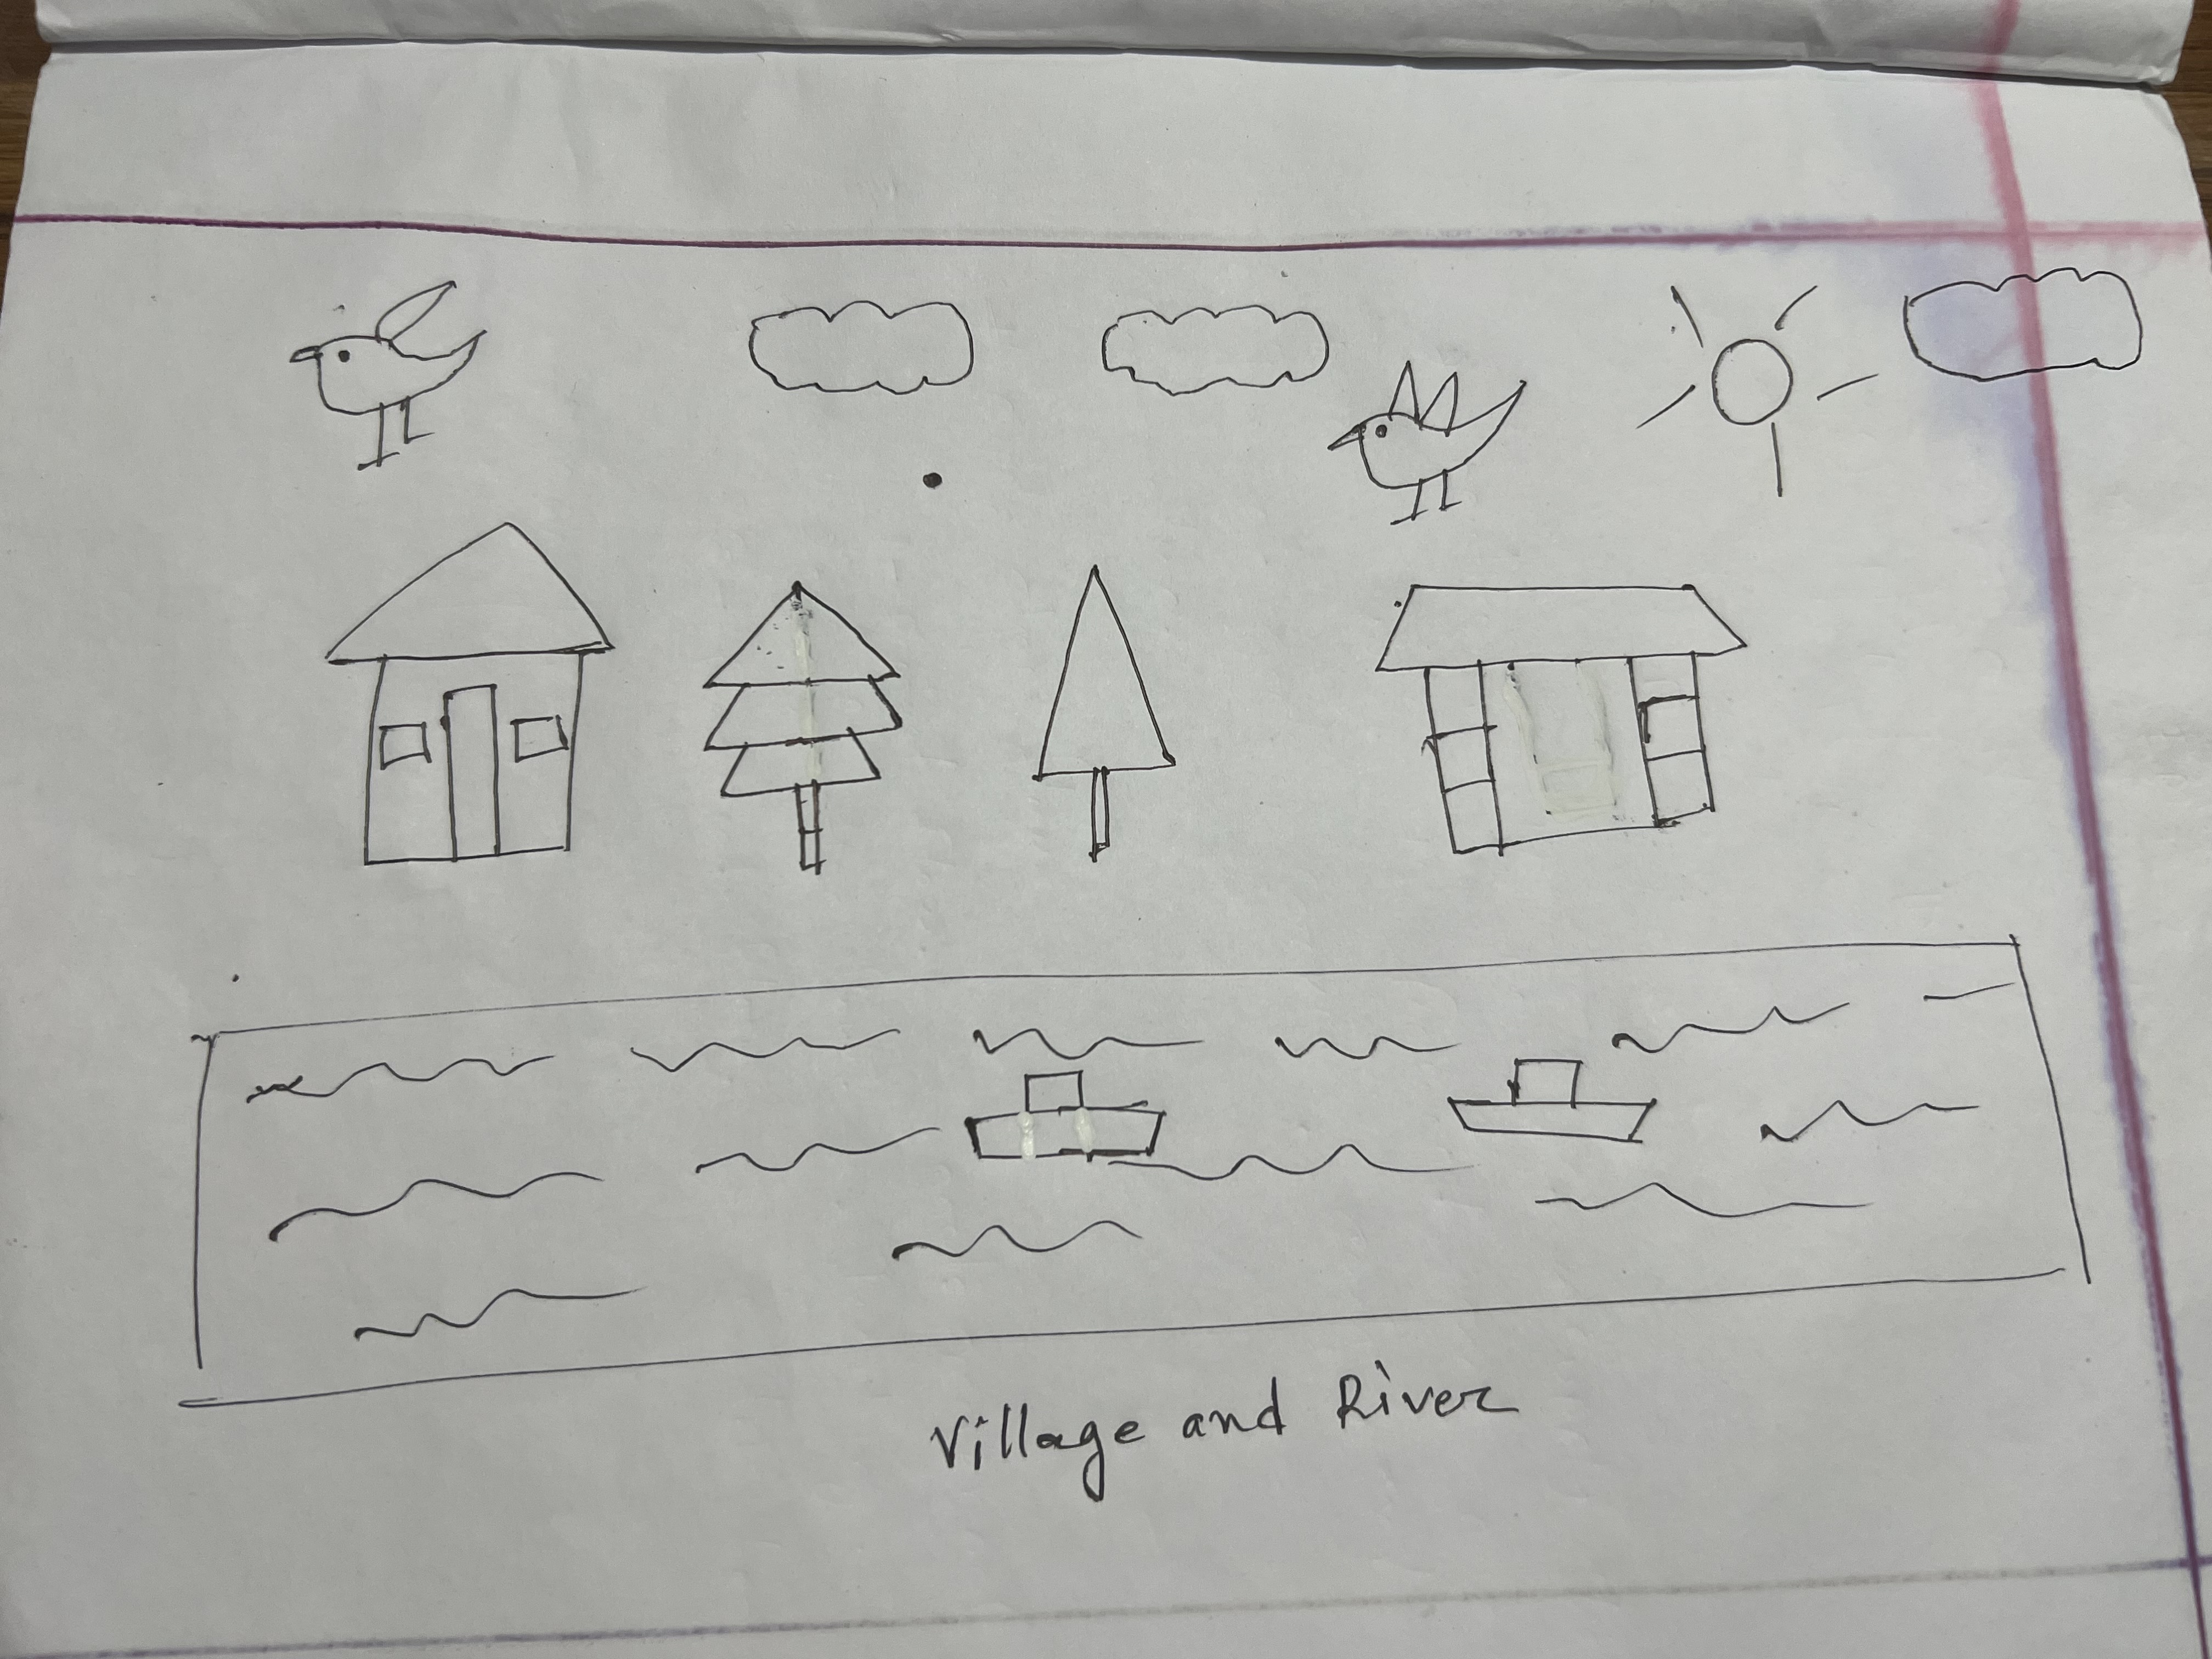 Village and River